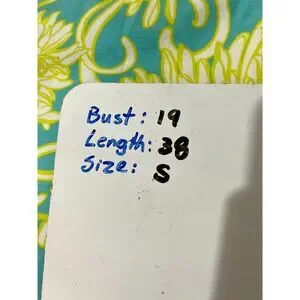 Bust: 19
Length: 38
Size: S